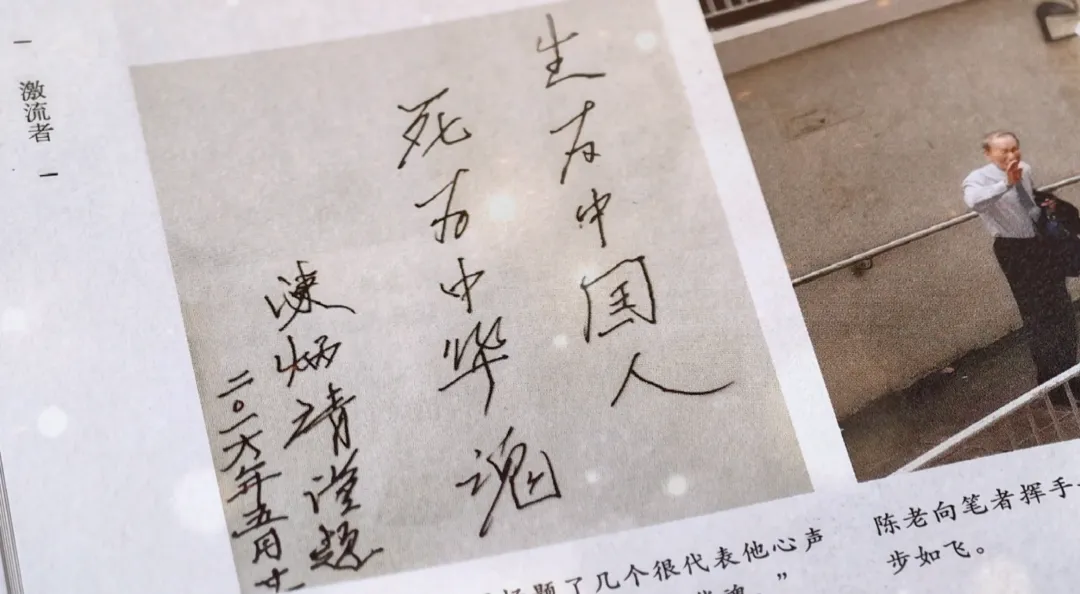 激流者
生为中国人
死为中华魂
陈炳靖谨题
二〇一六年五月
题了几个很代表他心声
魂。”
陈老向笔者挥手
步如飞。